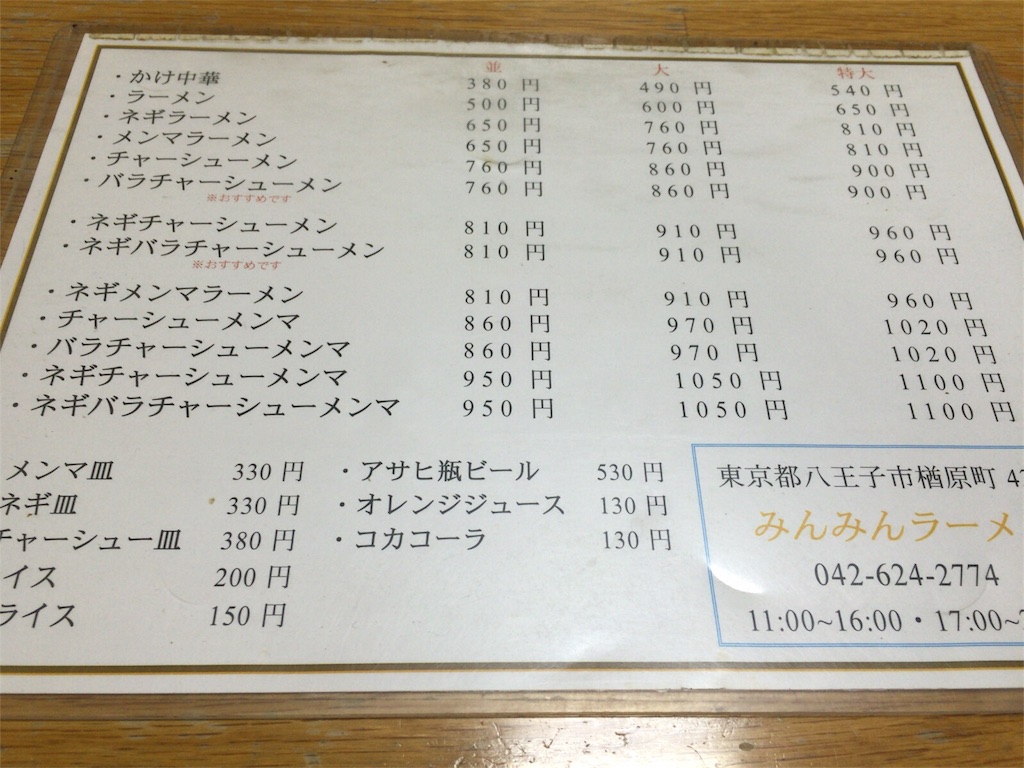 並 大 特大
・かけ中華 380 円 490 円 540 円
・ラーメン 500 円 600 円 650 円
・ネギラーメン 650 円 760 円 810 円
・メンマラーメン 650 円 760 円 810 円
・チャーシューメン 760 円 860 円 900 円
・バラチャーシューメン 760 円 860 円 900 円
※おすすめです
・ネギチャーシューメン 810 円 910 円 960 円
・ネギバラチャーシューメン 810 円 910 円 960 円
※おすすめです
・ネギメンマラーメン 810 円 910 円 960 円
・チャーシューメンマ 860 円 970 円 1020 円
・バラチャーシューメンマ 860 円 970 円 1020 円
・ネギチャーシューメンマ 950 円 1050 円 1100 円
・ネギバラチャーシューメンマ 950 円 1050 円 1100 円
メンマ皿 330 円
ネギ皿 330 円
チャーシュー皿 380 円
イス 200 円
ライス 150 円
・アサヒ瓶ビール 530 円
・オレンジジュース 130 円
・コカコーラ 130 円
東京都八王子市楢原町
みんみんラーメ
042-624-2774
11:00~16:00・17:00~